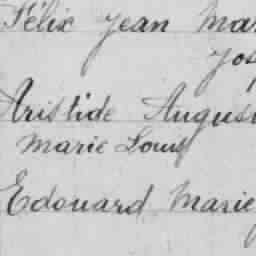 Félix Jean Mar
Jos
Aristide August
Marie Louis
Edouard Marie